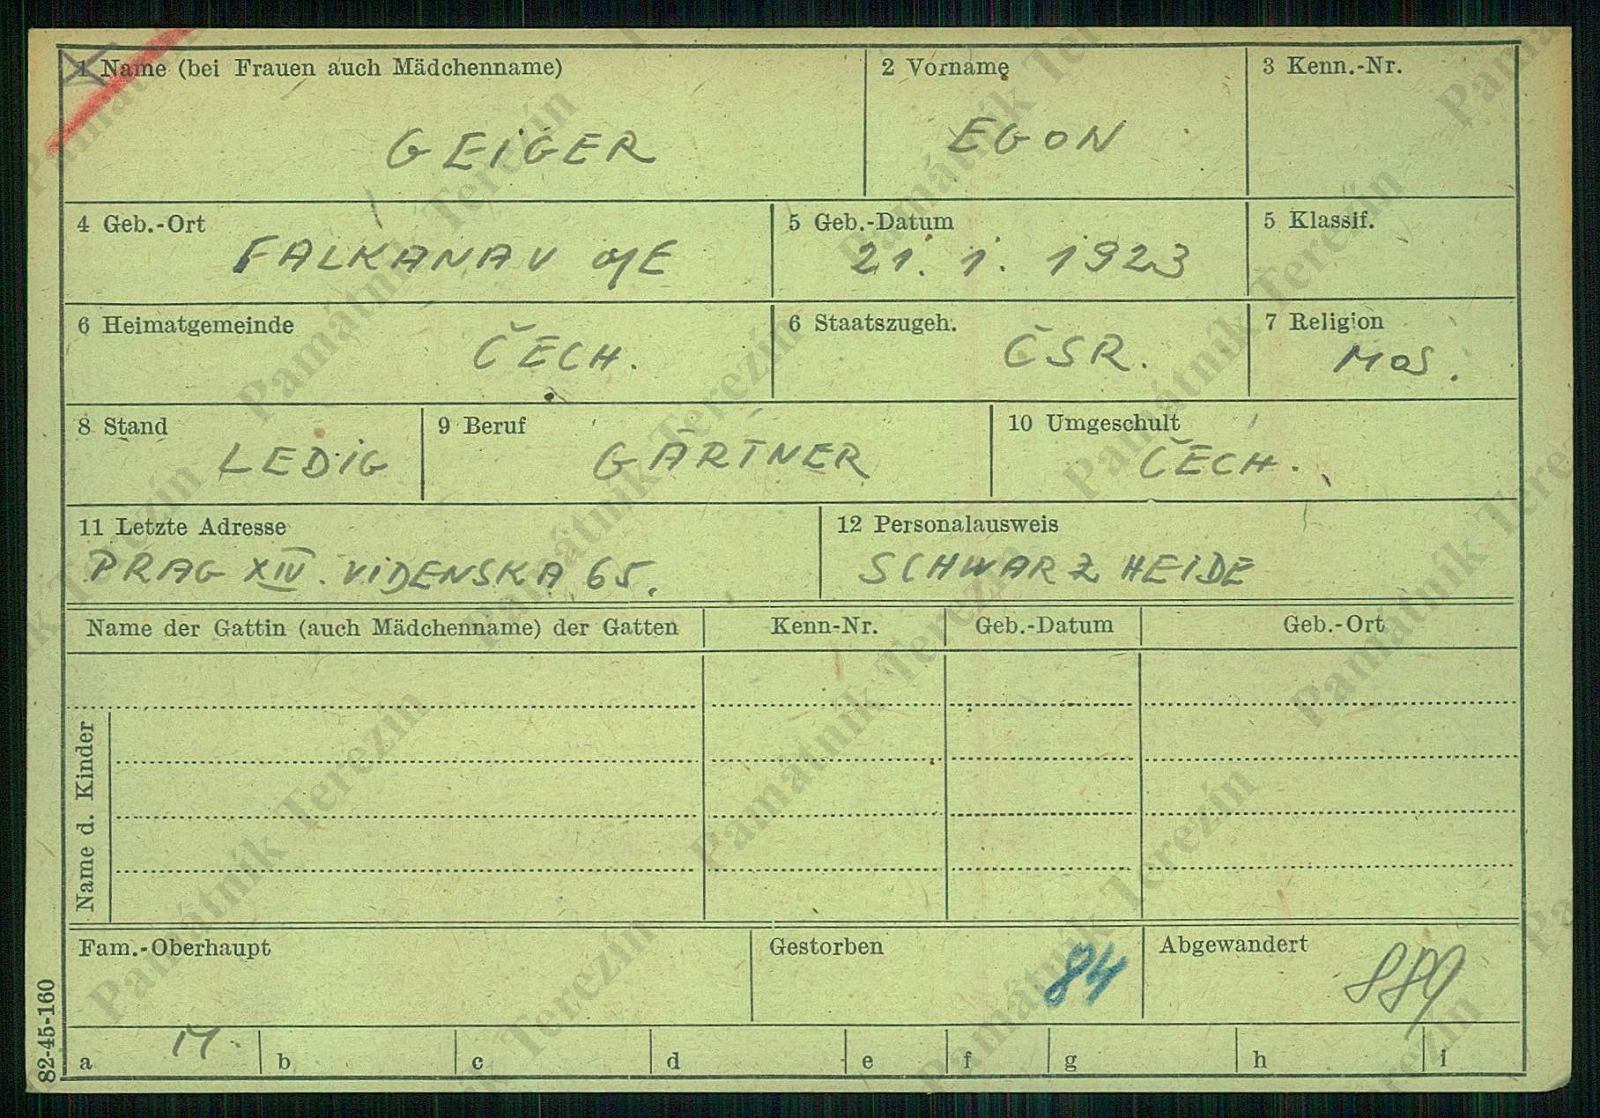 1 Name (bei Frauen auch Mädchenname)
GEIGER
2 Vorname
EGON
3 Kenn.-Nr.
4 Geb.-Ort
FALKANAU a/E
5 Geb.-Datum
21. 1. 1923
5 Klassif.
6 Heimatgemeinde
ČECH.
6 Staatszugeh.
ČSR.
7 Religion
MOS.
8 Stand
LEDIG
9 Beruf
GÄRTNER
10 Umgeschult
ČECH.
11 Letzte Adresse
PRAG XIV. VIDENSKA 65.
12 Personalausweis
SCHWARZHEIDE
Name der Gattin (auch Mädchenname) der Gatten
Kenn-Nr.
Geb.-Datum
Geb.-Ort
Name d. Kinder
Fam.-Oberhaupt
Gestorben
84
Abgewandert
889
82-45-160
a
b
c
d
e
f
g
h
i
Památník Terezín